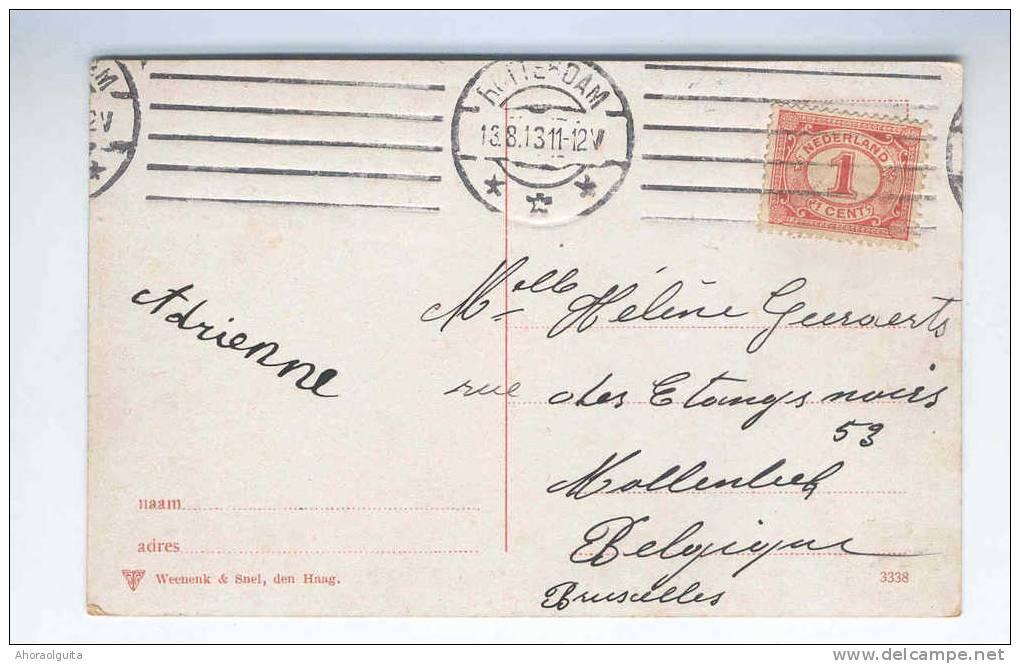 AM
2V
ROTTERDAM
13.8.13 11-12V
NEDERLAND
1
1 CENT
Adrienne
Mlle Hélène Geeraerts
rue des Etangs noirs
53
Mollenbeek
Belgique
Bruxelles
naam
adres
Weenenk & Snel, den Haag.
3338
Ahoraolguita
www.delcampe.net